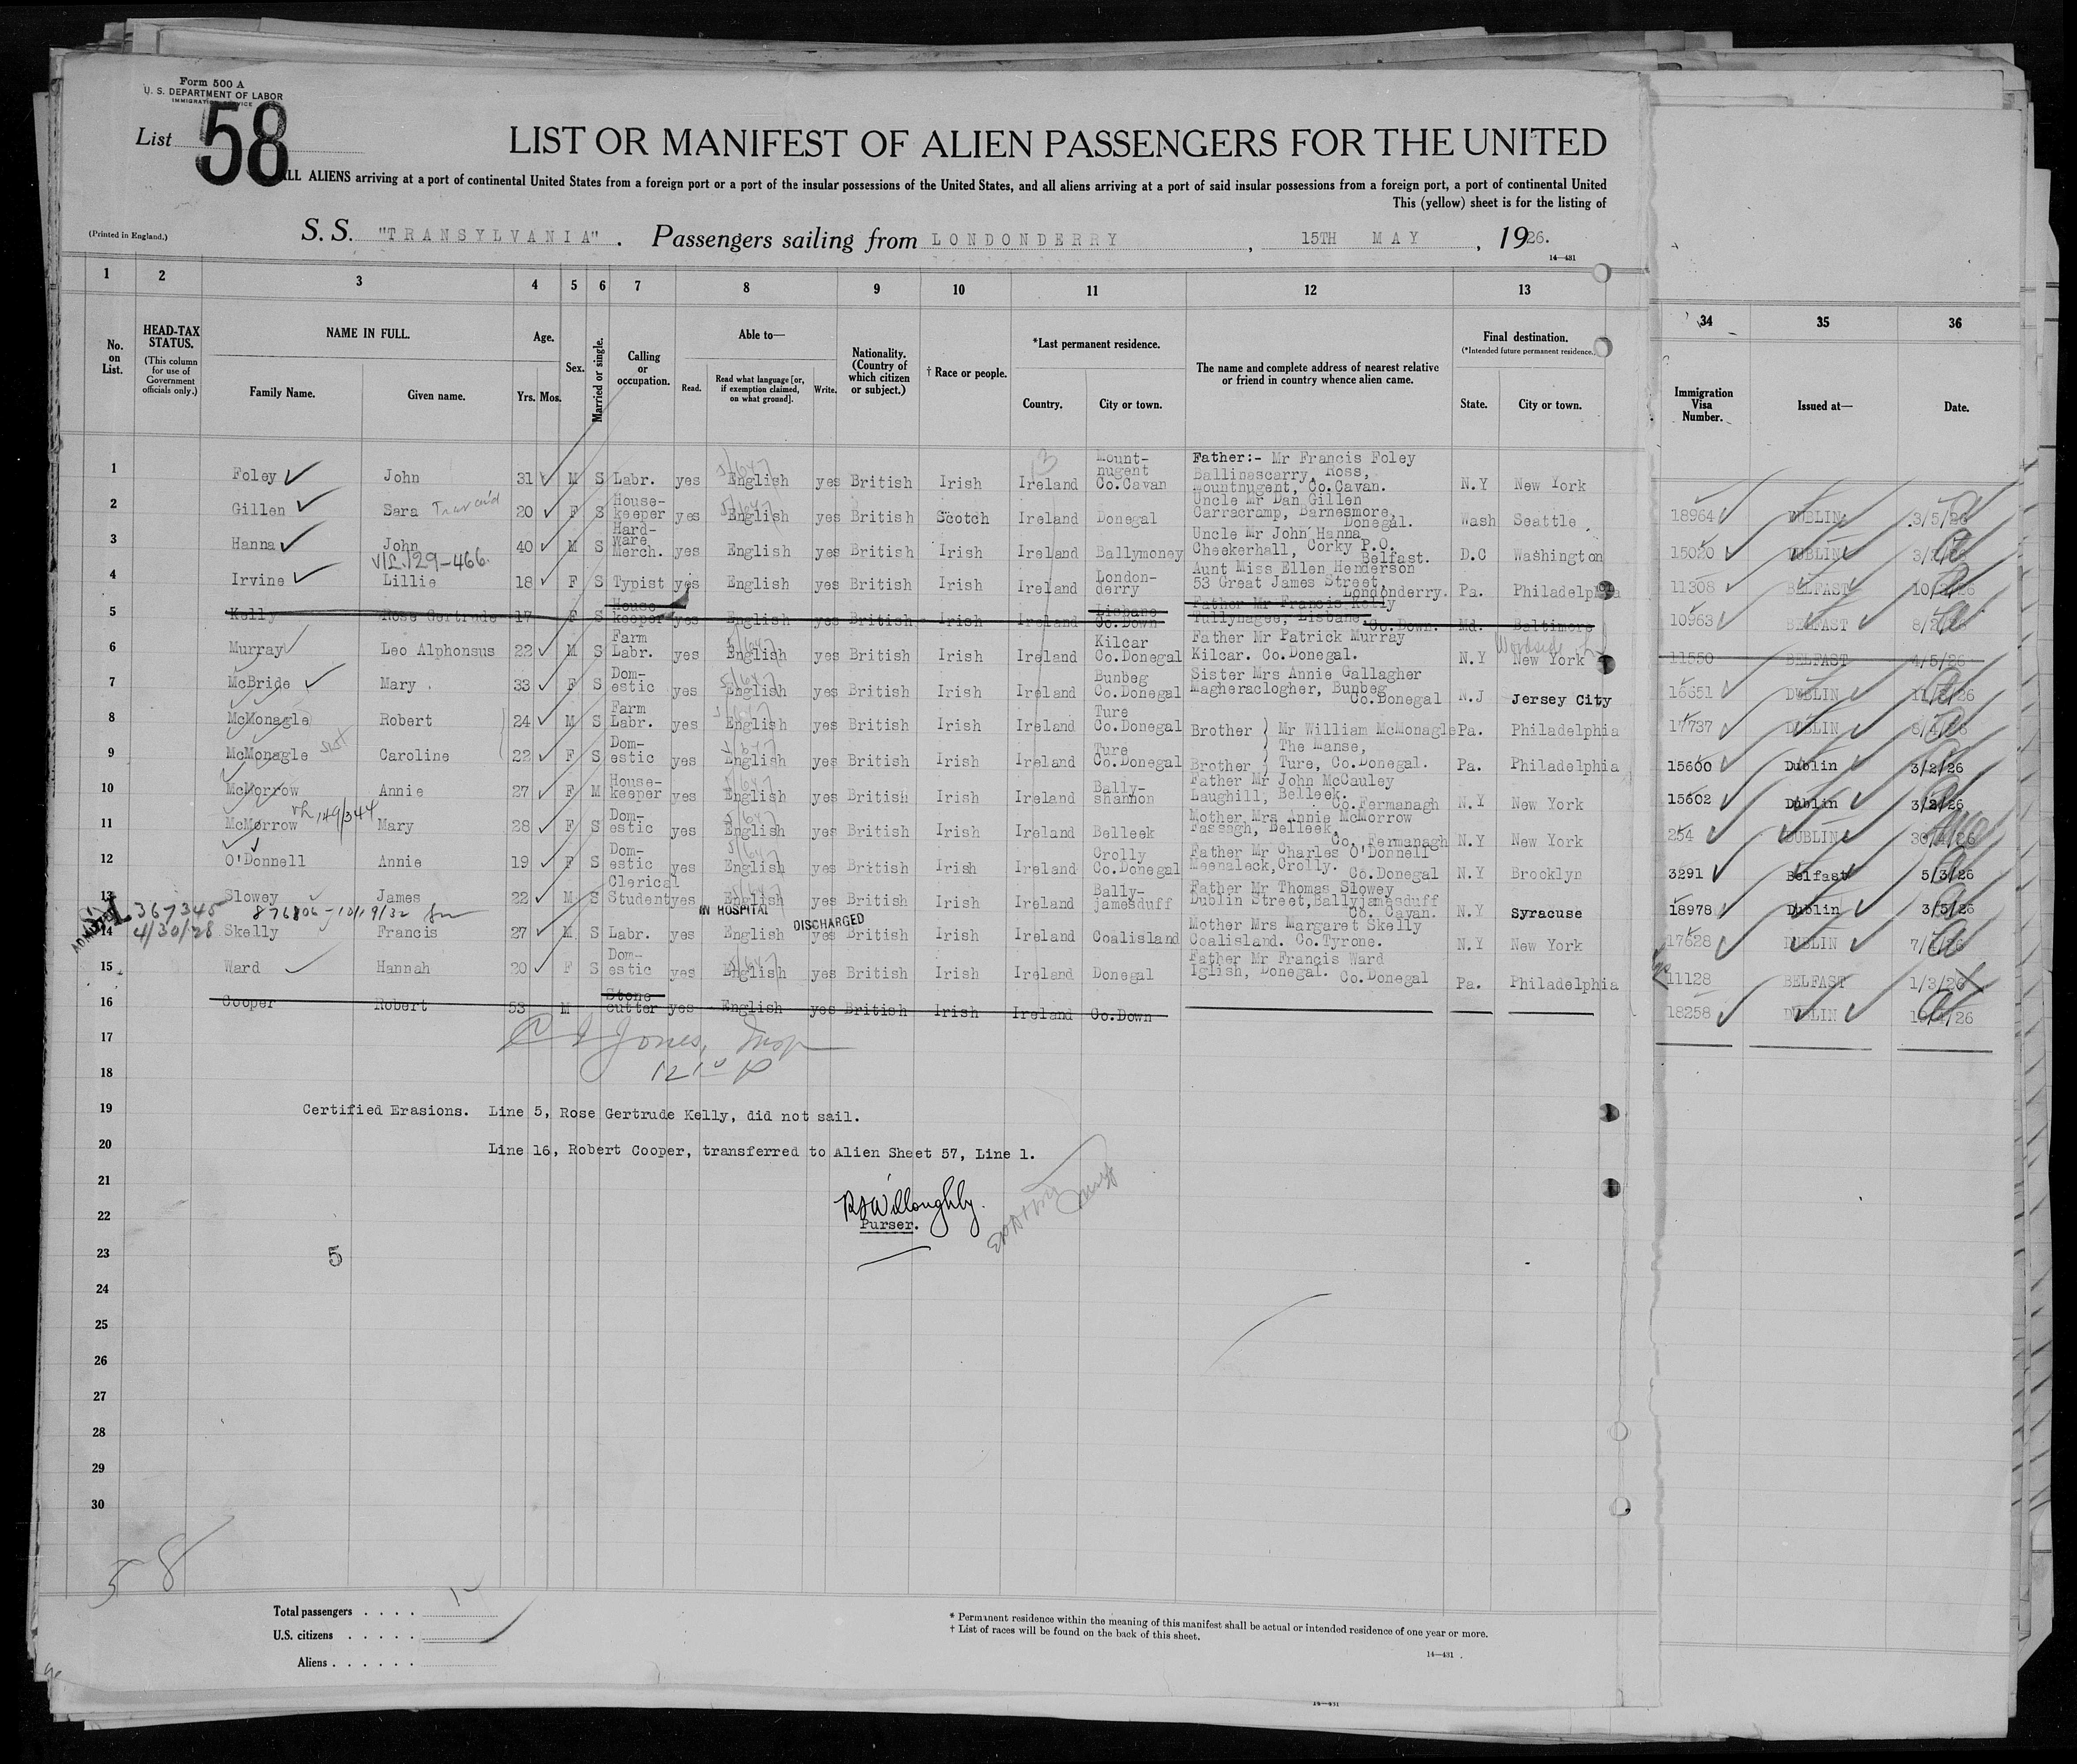 Form 500 A
U. S. DEPARTMENT OF LABOR
IMMIGRATION SERVICE
List 58
LIST OR MANIFEST OF ALIEN PASSENGERS FOR THE UNITED
ALL ALIENS arriving at a port of continental United States from a foreign port or a port of the insular possessions of the United States, and all aliens arriving at a port of said insular possessions from a foreign port, a port of continental United
This (yellow) sheet is for the listing of
(Printed in England.)
S. S. "TRANSYLVANIA". Passengers sailing from LONDONDERRY, 15TH MAY, 1926.
14—431
1 2 3 4 5 6 7 8 9 10 11 12 13 34 35 36
No. on List.
HEAD-TAX STATUS.
(This column for use of Government officials only.)
NAME IN FULL.
Family Name. Given name.
Age.
Yrs. Mos.
Sex.
Married or single.
Calling or occupation.
Able to—
Read. Read what language [or, if exemption claimed, on what ground]. Write.
Nationality. (Country of which citizen or subject.)
† Race or people.
*Last permanent residence.
Country. City or town.
The name and complete address of nearest relative or friend in country whence alien came.
Final destination.
(*Intended future permanent residence.)
State. City or town.
Immigration Visa Number.
Issued at—
Date.
1 Foley John 31 M S Labr. yes English yes British Irish Ireland Mount-nugent Co.Cavan Father:- Mr Francis Foley Ballinascarry, Ross, Mountnugent, Co.Cavan. N.Y New York
18964 DUBLIN 3/5/26
2 Gillen Sara 20 F S House-keeper yes English yes British Scotch Ireland Donegal Uncle Mr Dan Gillen Carracramp, Barnesmore, Donegal. Wash Seattle
15020 DUBLIN
3 Hanna John 40 M S Hard-ware Merch. yes English yes British Irish Ireland Ballymoney Uncle Mr John Hanna Cheekerhall, Corky P.O. Belfast. D.C Washington
V/L 129-466.
11308 BELFAST
4 Irvine Lillie 18 F S Typist yes English yes British Irish Ireland London-derry Aunt Miss Ellen Henderson 53 Great James Street, Londonderry. Pa. Philadelphia
10963 BELFAST
5 Kelly Rose Gertrude 17 F S House-keeper yes English yes British Irish Ireland Lisbane Co.Down Father Mr Francis Kelly Tullynagee, Lisbane, Co.Down. Md. Baltimore
11550 BELFAST 4/5/26
6 Murray Leo Alphonsus 22 M S Farm Labr. yes English yes British Irish Ireland Kilcar Co.Donegal Father Mr Patrick Murray Kilcar. Co.Donegal. N.Y New York
Woodside
16651 DUBLIN
7 McBride Mary. 33 F S Dom-estic yes English yes British Irish Ireland Bunbeg Co.Donegal Sister Mrs Annie Gallagher Magheraclogher, Bunbeg Co.Donegal N.J Jersey City
17737 DUBLIN
8 McMonagle Robert 24 M S Farm Labr. yes English yes British Irish Ireland Ture Co.Donegal Brother } Mr William McMonagle Pa. Philadelphia
15600 Dublin 3/2/26
9 McMonagle Caroline 22 F S Dom-estic yes English yes British Irish Ireland Ture Co.Donegal Brother } The Manse, Ture, Co.Donegal. Pa. Philadelphia
15602 Dublin 3/2/26
10 McMorrow Annie 27 F M House-keeper yes English yes British Irish Ireland Bally-shannon Father Mr John McCauley Laughill, Belleek. Co.Fermanagh N.Y New York
254 DUBLIN
11 McMorrow Mary 28 F S Dom-estic yes English yes British Irish Ireland Belleek Mother Mrs Annie McMorrow Fassagh, Belleek, Co. Fermanagh N.Y New York
3291 Belfast 5/3/26
12 O'Donnell Annie 19 F S Dom-estic yes English yes British Irish Ireland Crolly Co.Donegal Father Mr Charles O'Donnell Meenaleck,Crolly. Co.Donegal N.Y Brooklyn
18978 Dublin 3/5/26
13 Slowey James 22 M S Clerical Student yes English yes British Irish Ireland Bally-jamesduff Father Mr Thomas Slowey Dublin Street,Ballyjamesduff Co. Cavan. N.Y Syracuse
367345
4/30/28
IN HOSPITAL
DISCHARGED
ADMITTED
17628 DUBLIN
14 Skelly Francis 27 M S Labr. yes English yes British Irish Ireland Coalisland Mother Mrs Margaret Skelly Coalisland. Co.Tyrone. N.Y New York
11128 BELFAST 1/3/26
15 Ward Hannah 20 F S Dom-estic yes English yes British Irish Ireland Donegal Father Mr Francis Ward Iglish, Donegal. Co.Donegal Pa. Philadelphia
18258 DUBLIN
16 Cooper Robert 53 M Stone cutter yes English yes British Irish Ireland Co.Down
17
18
19 Certified Erasions. Line 5, Rose Gertrude Kelly, did not sail.
20 Line 16, Robert Cooper, transferred to Alien Sheet 57, Line 1.
21
22 Purser.
23 5
24
25
26
27
28
29
30
58
Total passengers . . . .
U.S. citizens . . . . .
Aliens . . . . . .
* Permanent residence within the meaning of this manifest shall be actual or intended residence of one year or more.
† List of races will be found on the back of this sheet.
14—431